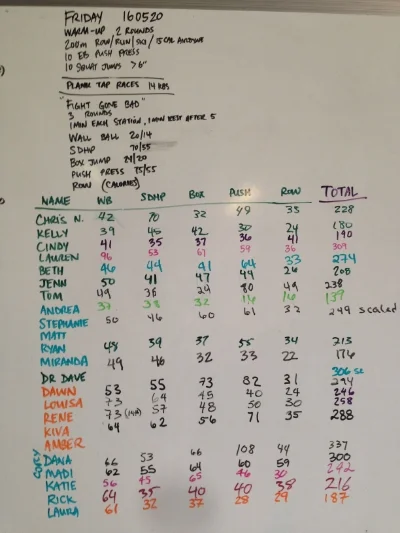 FRIDAY 160520
WARM-UP 2 ROUNDS
200m ROW/RUN/SKI/15 CAL AIRDYNE
10 EB PUSH PRESS
10 SQUAT JUMPS >6"
PLANK TAP RACES 14 KBS
"FIGHT GONE BAD"
3 ROUNDS
1 MIN EACH STATION, 1 MIN REST AFTER 5
WALL BALL 20/14
SDHP 70/55
BOX JUMP 24/20
PUSH PRESS 75/55
ROW (CALORIES)
NAME WB SDHP BOX PUSH ROW TOTAL
CHRIS N. 42 70 32 49 35 228
KELLY 39 45 42 30 24 180
CINDY 41 35 37 36 41 190
LAUREN 96 53 61 59 36 309
BETH 46 44 41 64 33 274
JENN 50 41 47 49 26 208
TOM 49 38 29 80 49 238
ANDREA 37 38 32 16 16 139
STEPHANIE 50 46 60 61 32 249 scaled
MATT
RYAN 48 39 37 55 34 213
MIRANDA 49 46 32 33 22 176
DR DAVE 306 sc
DAWN 53 55 73 82 31 294
LOUISA 73 64 45 40 24 246
RENE 73 57 48 50 30 258
KIVA 64 62 56 71 35 288
AMBER
DANA 66 53 66 108 44 337
MADI 62 55 64 60 59 300
KATIE 56 45 65 46 30 242
RICK 64 35 40 40 38 216
LAURA 61 32 37 28 29 187